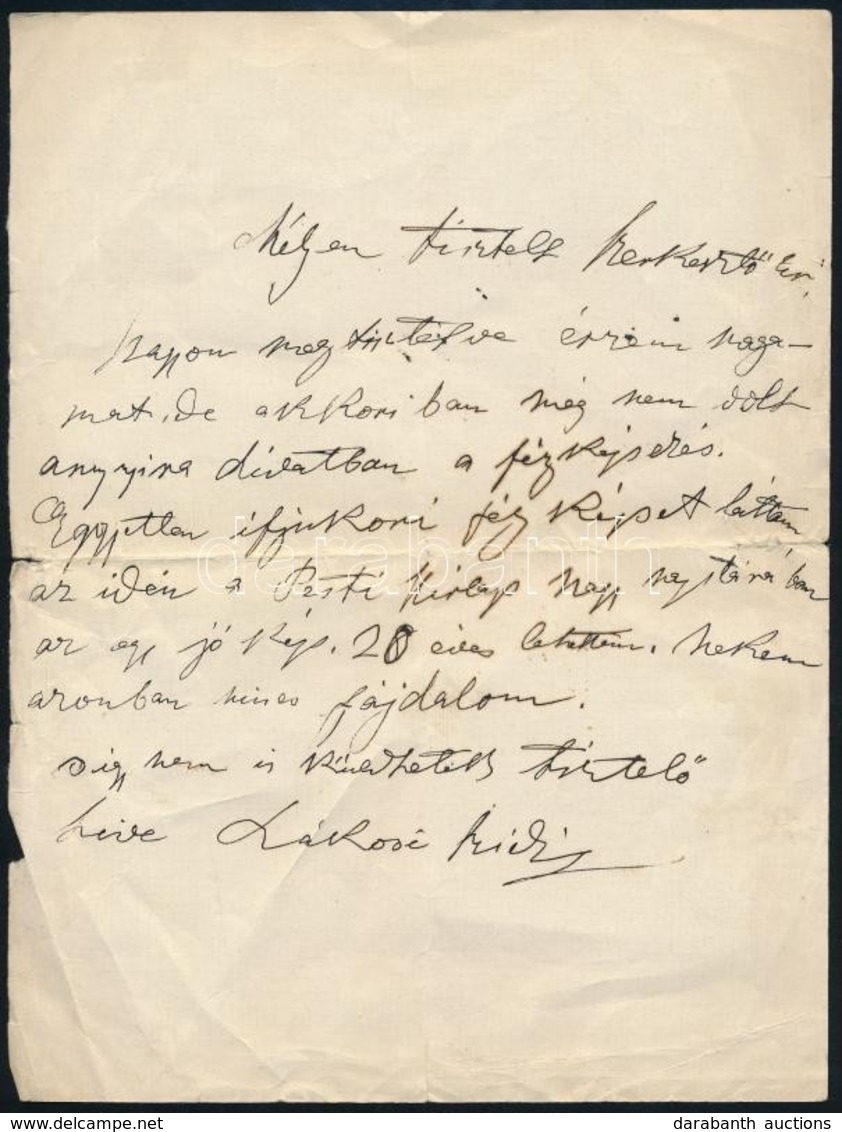 Mélyen tisztelt Szerkesztő Úr!
Nagyon megtisztelve érzem maga-
mat, de akkoriban még nem volt
annyira divatban a fényképezés.
Egyetlen ifjukori fényképet láttam
az idén a Pesti Hirlap nagy naptárában
az egy jó kép. 20 éves lehettem. Nekem
azonban nincs fájdalom.
s így nem is küldhetek tisztelő
hive Rákosi Szidi
darabanth
darabanth auctions